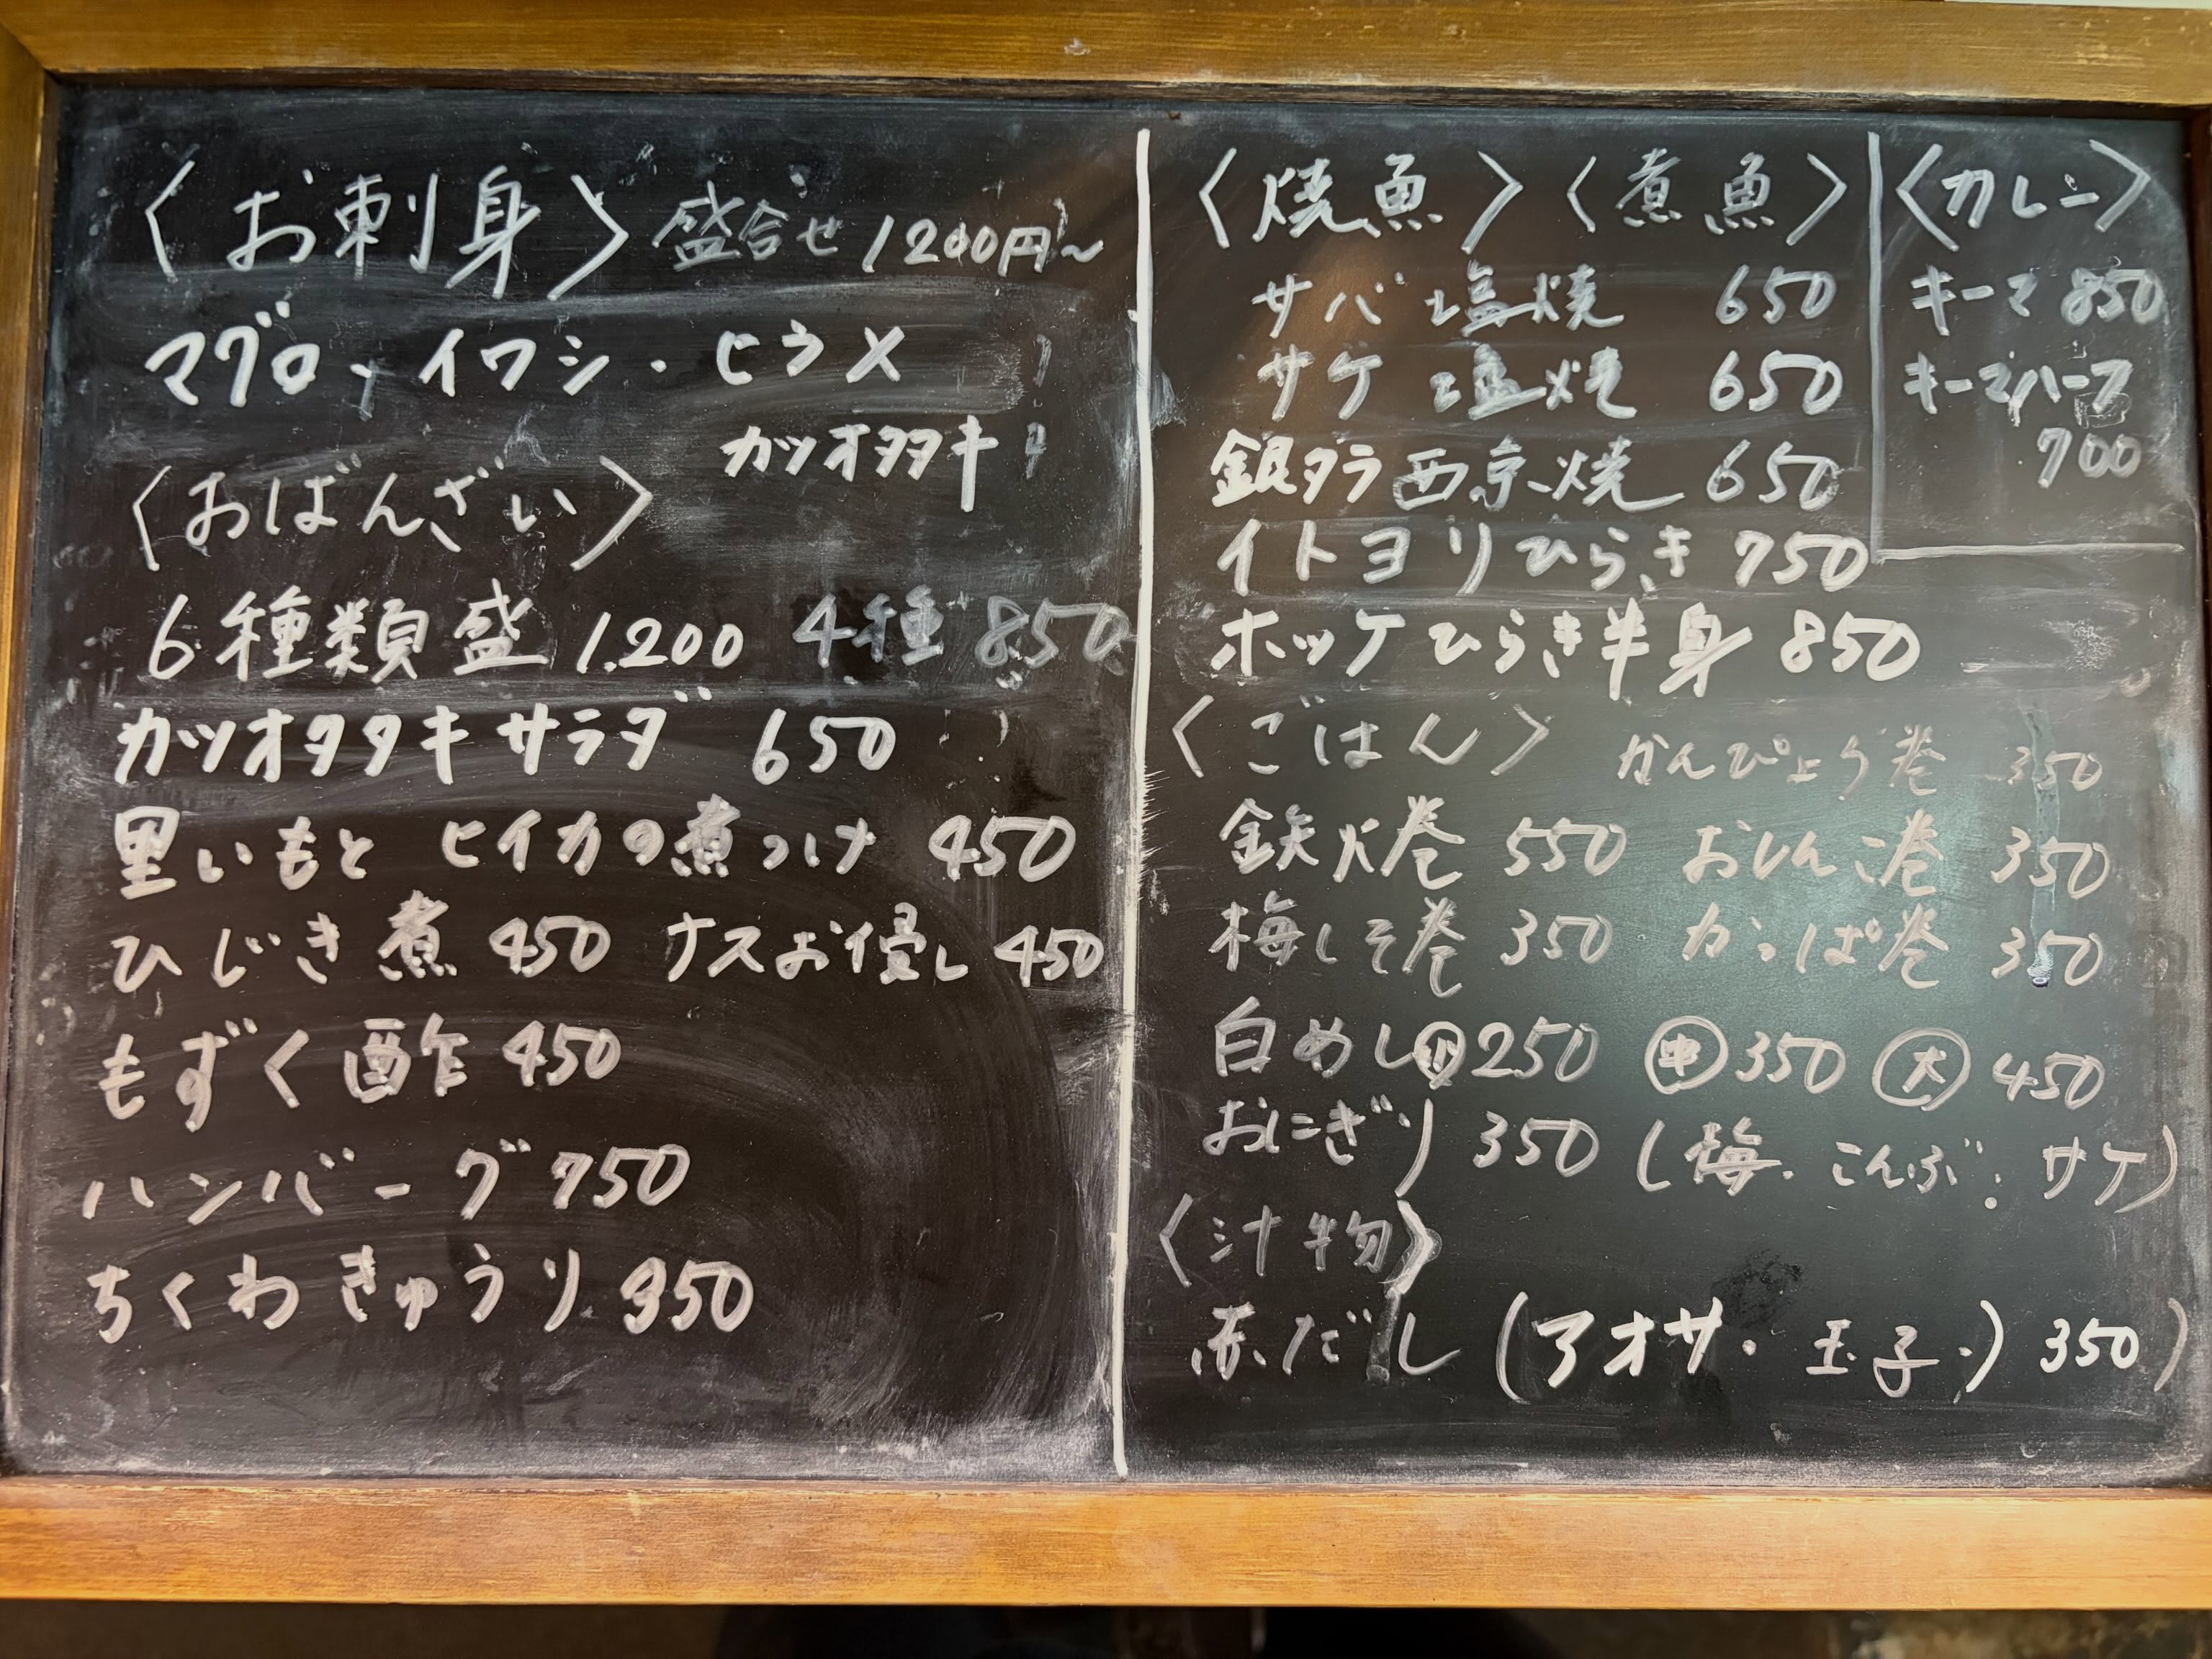 〈お刺身〉盛合せ 1200円~
マグロ・イワシ・ヒラメ
カツオタタキ
〈おばんざい〉
6種類盛 1.200 4種 850
カツオタタキサラダ 650
里いもと ヒイカの煮つけ 450
ひじき煮 450 ナスお浸し 450
もずく酢 450
ハンバーグ 750
ちくわきゅうり 350
〈焼魚〉〈煮魚〉
サバ塩焼 650
サケ塩焼 650
銀タラ西京焼 650
イトヨリひらき 750
ホッケひらき半身 850
〈カレー〉
キーマ 850
キーマハーフ
700
〈ごはん〉 かんぴょう巻 350
鉄火巻 550 おしんこ巻 350
梅しそ巻 350 かっぱ巻 350
白めし 小 250 中 350 大 450
おにぎり 350 (梅・こんぶ・サケ)
〈汁物〉
赤だし (アオサ・玉子・) 350)